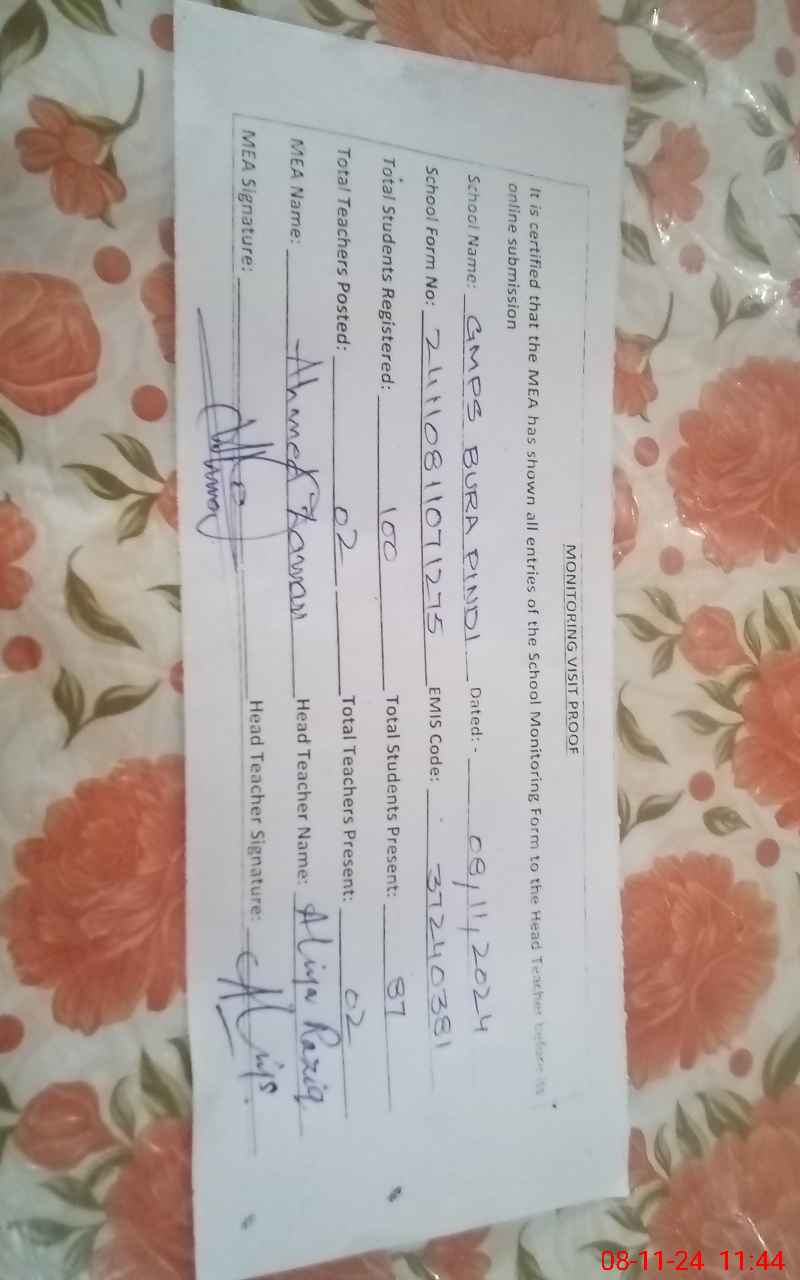 MONITORING VISIT PROOF
It is certified that the MEA has shown all entries of the School Monitoring Form to the Head Teacher before its
online submission
School Name: GMPS BURA PINDI Dated: - 08,11,2024
School Form No: 24110811071275 EMIS Code: 37240381
Total Students Registered: 100 Total Students Present: 87
Total Teachers Posted: 02 Total Teachers Present: 02
MEA Name: Ahmed Head Teacher Name: Aliya Raziq
MEA Signature: Head Teacher Signature:
08-11-24 11:44